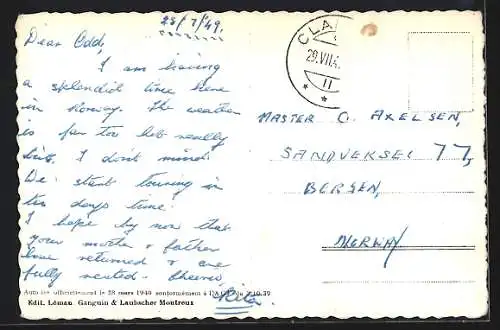 25/7/49.
Dear Odd,
I am having
a splendid time here
in Norway. The weather
is far too hot really
but I don't mind.
We start touring in
ten days time.
I hope by now that
your mother & father
have returned & are
fully rested. Cheerio
Rita.
Autorisé officiellement le 28 mars 1940 conformément à l'ACF 3.10.39
Edit. Léman Ganguin & Laubscher Montreux
CLA
29.VII.4
11
MASTER O. AXELSEN,
SANDVEKSEI 77,
BERGEN,
NORWAY